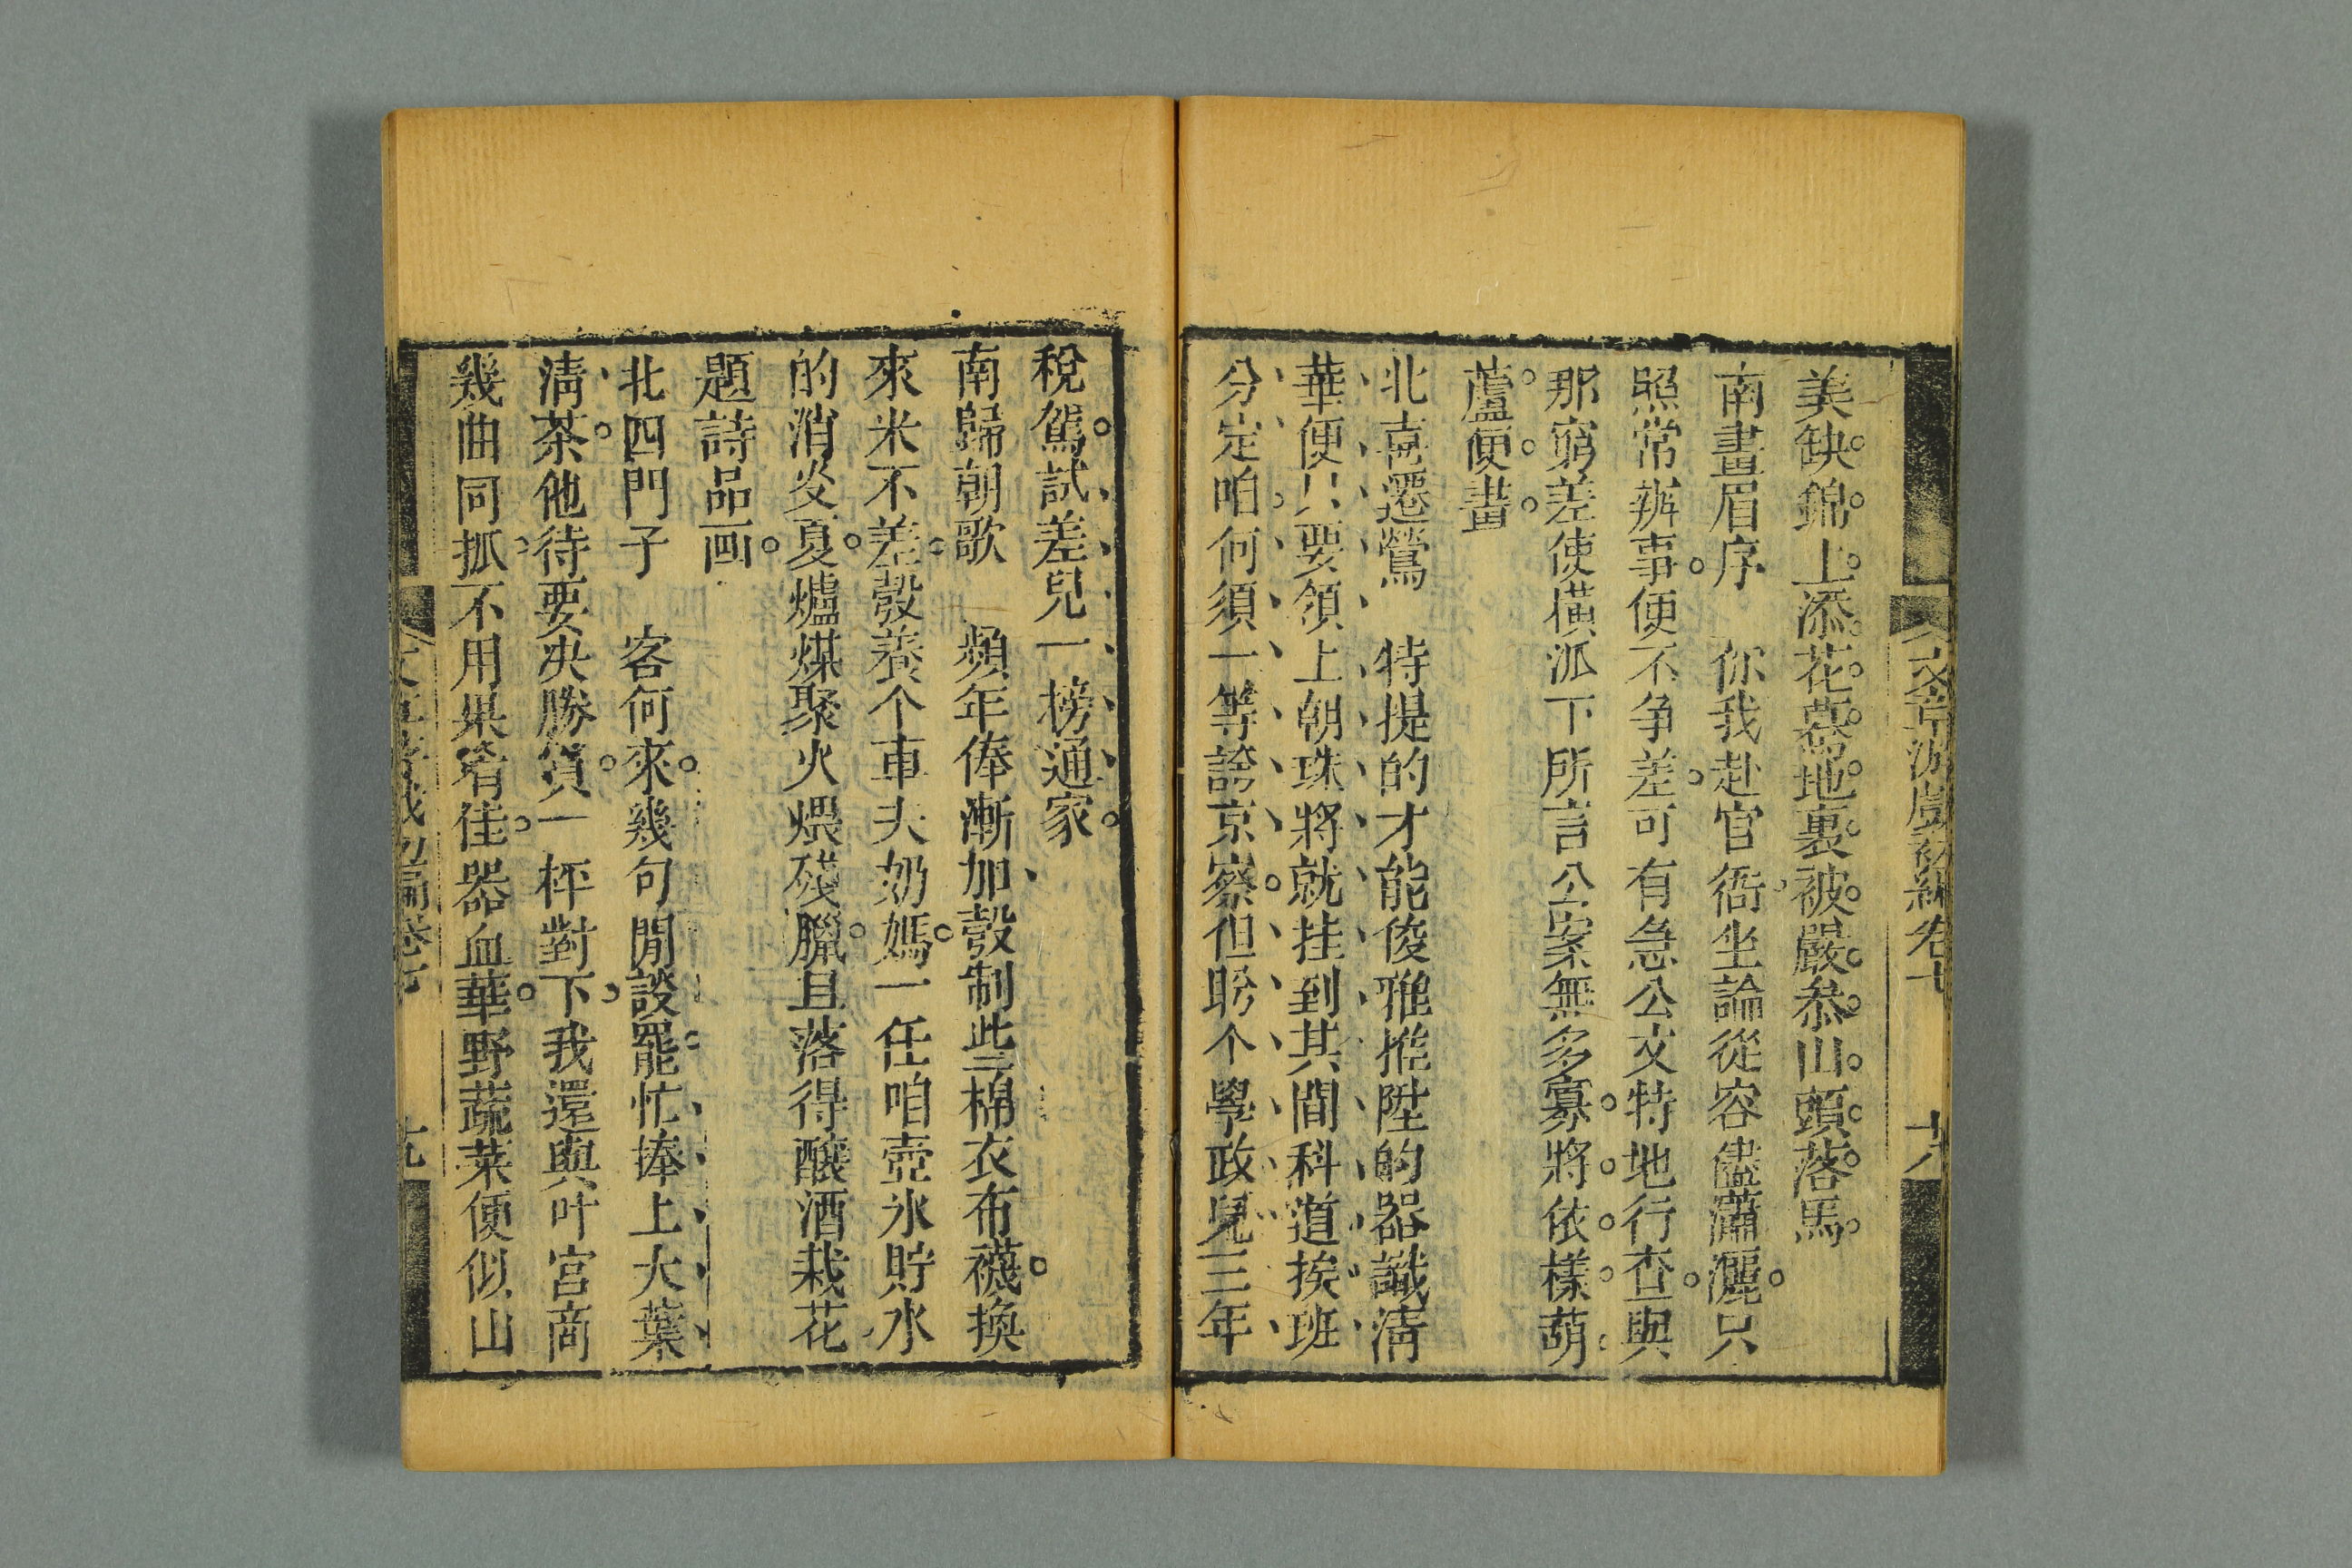 文章游戲初編卷七
十八
美缺錦上添花驀地裏被嚴叅山頭落馬
南畫眉序　你我赴官衙坐論從容儘瀟灑只
照常辦事便不争差可有急公文特地行查與
那窮差使橫派下所言公案無多寡將依樣葫
蘆便畫
北喜遷鶯　特提的才能俊雅推陞的器識淸
華便只要領上朝珠將就挂到其間科道挨班
分定咱何須一等誇京察但盼个學政兒三年
稅駕試差兒一榜通家
南歸朝歌　頻年俸漸加彀制些棉衣布襪換
來米不差彀養个車夫奶媽一任咱壺氷貯水
的消炎夏爐煤聚火煨殘臘且落得釀酒栽花
題詩品画
北四門子　客何來幾句閒談罷忙捧上大葉
淸茶他待要决勝負一枰對下我還與叶宮商
幾曲同抓不用果肴佳器皿華野蔬菜便似山